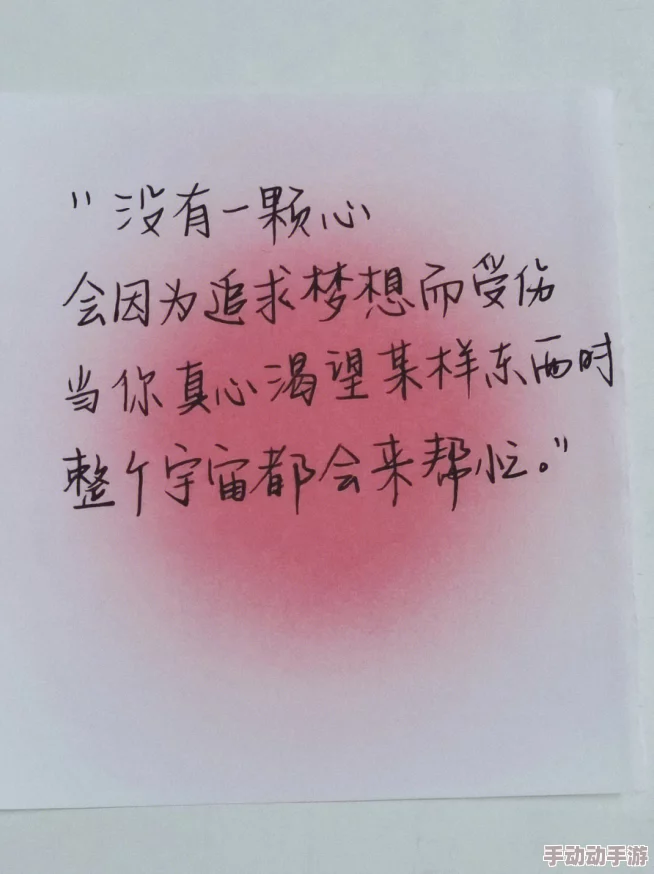 "没有一颗心
会因为追求梦想而受伤
当你真心渴望某样东西时
整个宇宙都会来帮忙。"
手动动手游